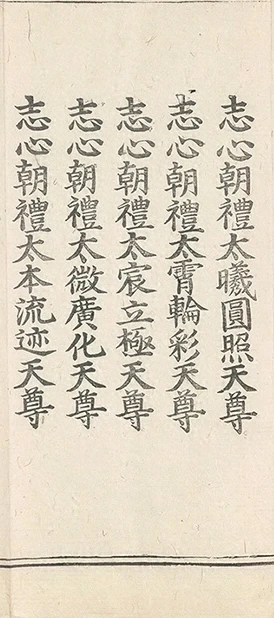 志心朝禮太曦圓照天尊
志心朝禮太霄輪彩天尊
志心朝禮太宸立極天尊
志心朝禮太微廣化天尊
志心朝禮太本流迹天尊